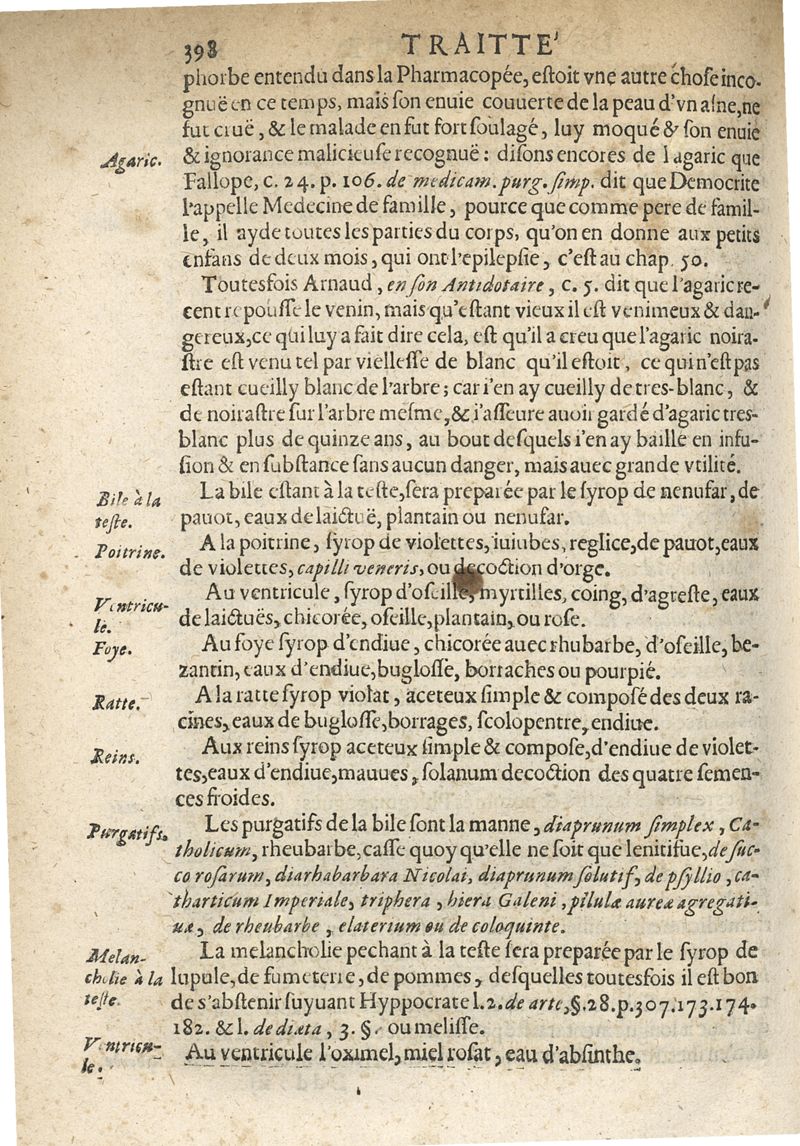 398 TRAITTE'
phorbe entendu dans la Pharmacopée, eſtoit vne autre choſe inco-
gnuë en ce temps, mais ſon enuie couuerte de la peau d'vn aſne, ne
fut cruë, & le malade en fut fort ſoulagé, luy moqué & ſon enuie
Agaric.
& ignorance malicieuſe recognuë: diſons encores de l agaric que
Fallope, c. 24. p. 106. de medicam. purg. ſimp. dit que Democrite
l'appelle Medecine de famille, pource que comme pere de famil-
le, il ayde toutes les parties du corps, qu'on en donne aux petits
enfans de deux mois, qui ont l'epilepſie, c'eſt au chap. 50.
Toutesfois Arnaud, en ſon Antidotaire, c. 5. dit que l'agaric re-
cent repouſſe le venin, mais qu'eſtant vieux il eſt venimeux & dan-
gereux, ce qui luy a fait dire cela, eſt qu'il a creu que l'agaric noira-
ſtre eſt venu tel par vielleſſe de blanc qu'il eſtoit, ce qui n'eſt pas
eſtant cueilly blanc de l'arbre; car i'en ay cueilly de tres-blanc, &
de noiraſtre ſur l'arbre meſme, & i'aſſeure auoir gardé d'agaric tres-
blanc plus de quinze ans, au bout deſquels i'en ay baillé en infu-
ſion & en ſubſtance ſans aucun danger, mais auec grande vtilité.
Bile à la
teſte.
La bile eſtant à la teſte, ſera preparée par le ſyrop de nenufar, de
pauot, eaux de laictuë, plantain ou nenufar.
Poitrine.
A la poitrine, ſyrop de violettes, iuiubes, reglice, de pauot, eaux
de violettes, capilli veneris, ou decoction d'orge.
Ventricu-
le.
Au ventricule, ſyrop d'oſeille, myrtilles, coing, d'agreſte, eaux
de laictuës, chicorée, oſeille, plantain, ou roſe.
Foye.
Au foye ſyrop d'endiue, chicorée auec rhubarbe, d'oſeille, be-
zantin, eaux d'endiue, bugloſſe, borraches ou pourpié.
Ratte.
A la ratte ſyrop violat, aceteux ſimple & compoſé des deux ra-
cines, eaux de bugloſſe, borrages, ſcolopentre, endiue.
Reins.
Aux reins ſyrop aceteux ſimple & compoſe, d'endiue de violet-
tes, eaux d'endiue, mauues, ſolanum decoction des quatre ſemen-
ces froides.
Purgatifs.
Les purgatifs de la bile ſont la manne, diaprunum ſimplex, Ca-
tholicum, rheubarbe, caſſe quoy qu'elle ne ſoit que lenitiſue, de ſuc-
co roſarum, diarhabarbara Nicolai, diaprunum ſolutif, de pſyllio, ca-
tharticum Imperiale, triphera, hiera Galeni, pilulæ aureæ agregati-
uæ, de rheubarbe, elaterium ou de coloquinte.
Melan-
cholie à la
teſte.
La melancholie pechant à la teſte ſera preparée par le ſyrop de
lupule, de fumeterie, de pommes, deſquelles toutesfois il eſt bon
de s'abſtenir ſuyuant Hyppocrate l. 2. de arte, §. 28. p. 307. 173. 174.
182. & l. de diæta, 3. §. ou meliſſe.
Ventricu-
le.
Au ventricule l'oximel, miel roſat, eau d'abſinthe.